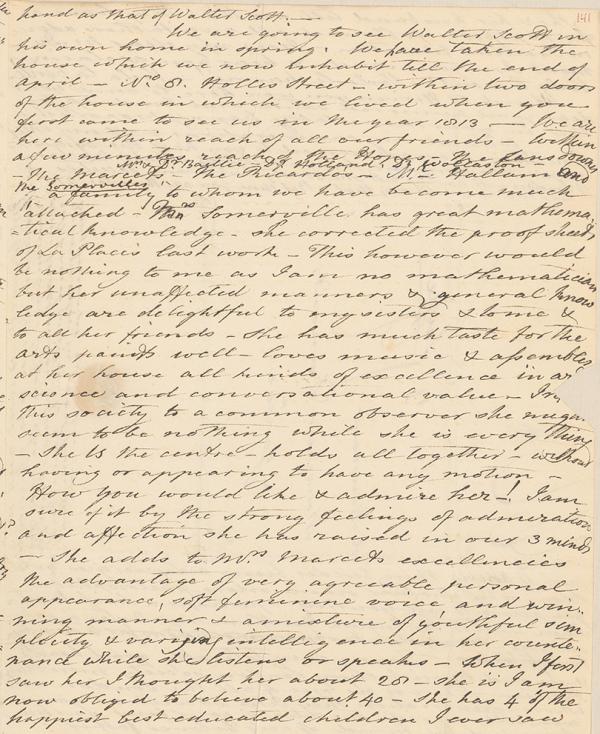 141
hand as that of Walter Scott. —
We are going to see Walter Scott in
his own home in spring. We have taken the
house which we now inhabit till the end of
April — No 8. Holles Street — within two doors
of the house in which we lived when you
first came to see us in the year 1813 — We are
here within reach of all our friends — Within
a few minutes reach of the
Mrs J Baillie — Dr Holland Dr Wollaston
— The Marcets — The Ricardos — Mr Hallam and
the Somervilles
— a family to whom we have become much
attached — Mrs Somerville has great mathema
=tical knowledge — she corrected the proof sheets
of La Place's last work — This however would
be nothing to me as I am no mathematician
but her unaffected manners & general know
ledge are delightful to my sisters & to me &
to all her friends — She has much taste for the
arts paints well — loves music & assembles
at her house all kinds of excellence in ar
science and conversational value — In
this society to a common observer she migh
seem to be nothing while she is every thing
— She is the centre — holds all together — without
having or appearing to have any motion —
How you would like & admire her —! I am
sure of it by the strong feelings of admiration
and affection she has raised in our 3 minds
— She adds to Mrs Marcets excellencies
the advantage of very agreeable personal
appearance, soft feminine voice and win-
ning manner & a mixture of youthful sim
plicity & varying intelligence in her counte-
nance while she listens or speaks — When I first
saw her I thought her about 28 — she is I am
now obliged to believe about 40 — She has 4 of the
happiest best educated children I ever saw